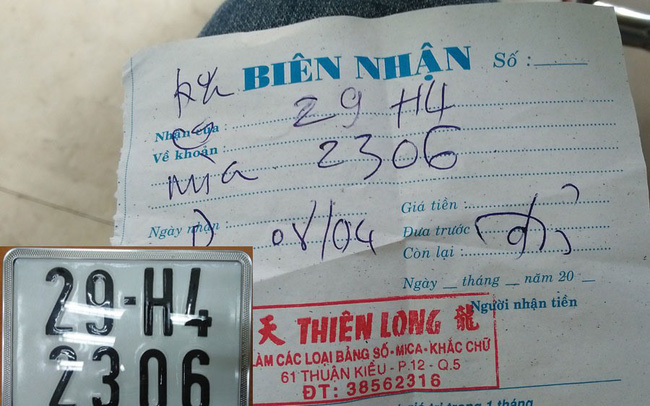 BIÊN NHẬN Số :
Nhận của : 29 H4
Về khoản : 2306
mica
Giá tiền :
Ngày nhận 08/04 Đưa trước : đủ
Còn lại :
Ngày __ tháng __ năm 20 __
Người nhận tiền
天 THIÊN LONG 龍
LÀM CÁC LOẠI BẢNG SỐ-MICA-KHẮC CHỮ
61 THUẬN KIỀU - P.12 - Q.5
ĐT: 38562316
29-H4
2306